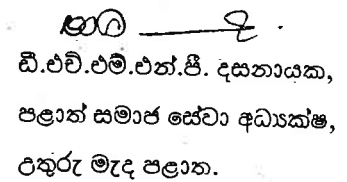 ඩී.එච්.එම්.එන්.පී. දසනායක,
පළාත් සමාජ සේවා අධ්‍යක්ෂ,
උතුරු මැද පළාත.